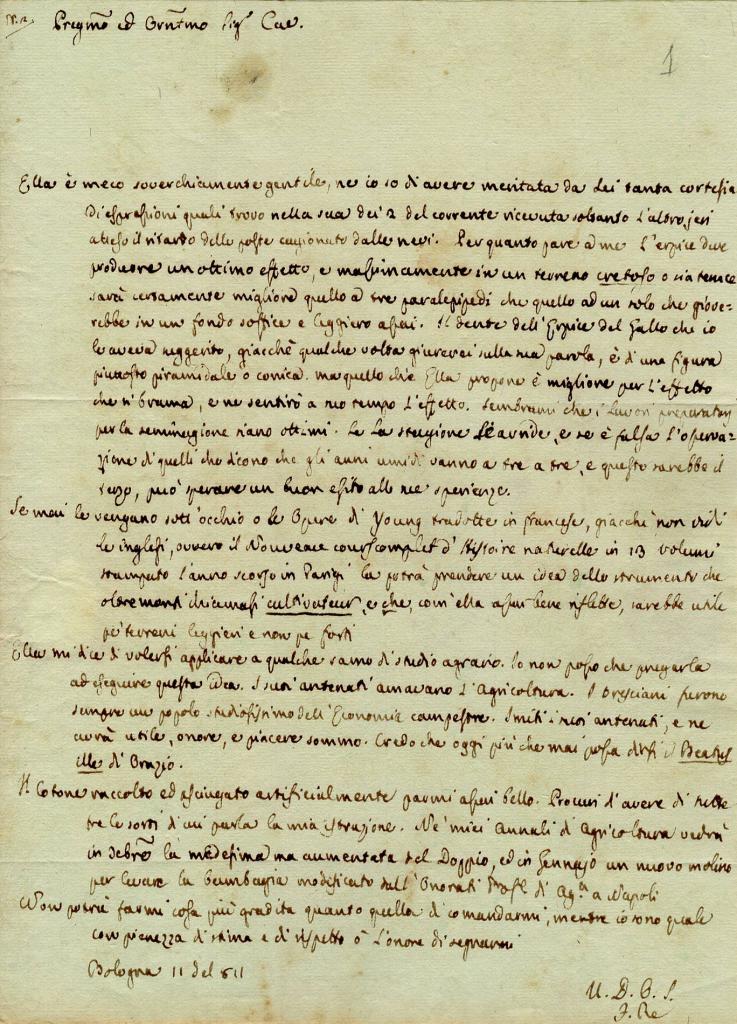 N. 2. Pregmo ed Ornmo Sigr Cav.
1
Ella è meco soverchiamente gentile, ne io so di avere meritata da Lei tanta cortesia
di espressioni quali trovo nella sua dei 2 del corrente ricevuta soltanto l'altro jeri
atteso il ritardo delle poste cagionato dalle nevi. Per quanto pare a me l'erpice deve
produrre un ottimo effetto, e massimamente in un terreno cretoso o sia tenace
sarà certamente migliore quello a tre paralepipedi che quello ad un solo che giove-
rebbe in un fondo soffice e leggiero assai. Il dente dell'Erpice del Gallo che io
le aveva suggerito, giacchè qualche volta giurerei sulla sua parola, è di una figura
piuttosto piramidale o conica. ma quello che Ella propone è migliore per l'effetto
che si brama, e ne sentirò a suo tempo l'effetto. Sembrami che i lavori preparatorj
per la seminagione siano ottimi. Se la stagione, e se è falsa l'osserva-
zione di quelli che dicono che gli anni umidi vanno a tre a tre, e questo sarebbe il
terzo, può sperare un buon esito alle sue sperienze.
Se mai le vengano sott'occhio o le Opere di Young tradotte in francese, giacchè non vidi
le inglesi, ovvero il Nouveau cours complet d'Histoire naturelle in 13 volumi
stampato l'anno scorso in Parigi la potrà prendere un idea dello strumento che
oltre monti chiamasi cultivateur, e che, com'ella assai bene riflette, sarebbe utile
pe' terreni leggieri e non pe forti
Ella mi dice di volersi applicare a qualche ramo di studio agrario. Io non posso che pregarla
ad eseguire questa idea. I suoi antenati amavano l'Agricoltura. I Bresciani furono
sempre un popolo studiosissimo dell'Economia campestre. Imiti i suoi antenati, e ne
avrà utile, onore, e piacere sommo. Credo che oggi più che mai possa dirsi il Beatus
ille di Orazio.
Il Cotone raccolto ed asciugato artificialmente parmi assai bello. Procuri d'avere di tutte
tre le sorti di cui parla la mia istruzione. Ne' miei Annali di Agricoltura vedrà
in Xebre la medesima ma aumentata del Doppio, ed in Gennajo un nuovo molino
per levare la bambagia modificato dall'Onorati Profe. di Aga. a Napoli
Non potrà farmi cosa più gradita quanto quella di comandarmi, mentre io sono quale
con pienezza di stima e di rispetto ò l'onore di segnarmi
Bologna 11 del 811
U. D. O. S.
F. Re